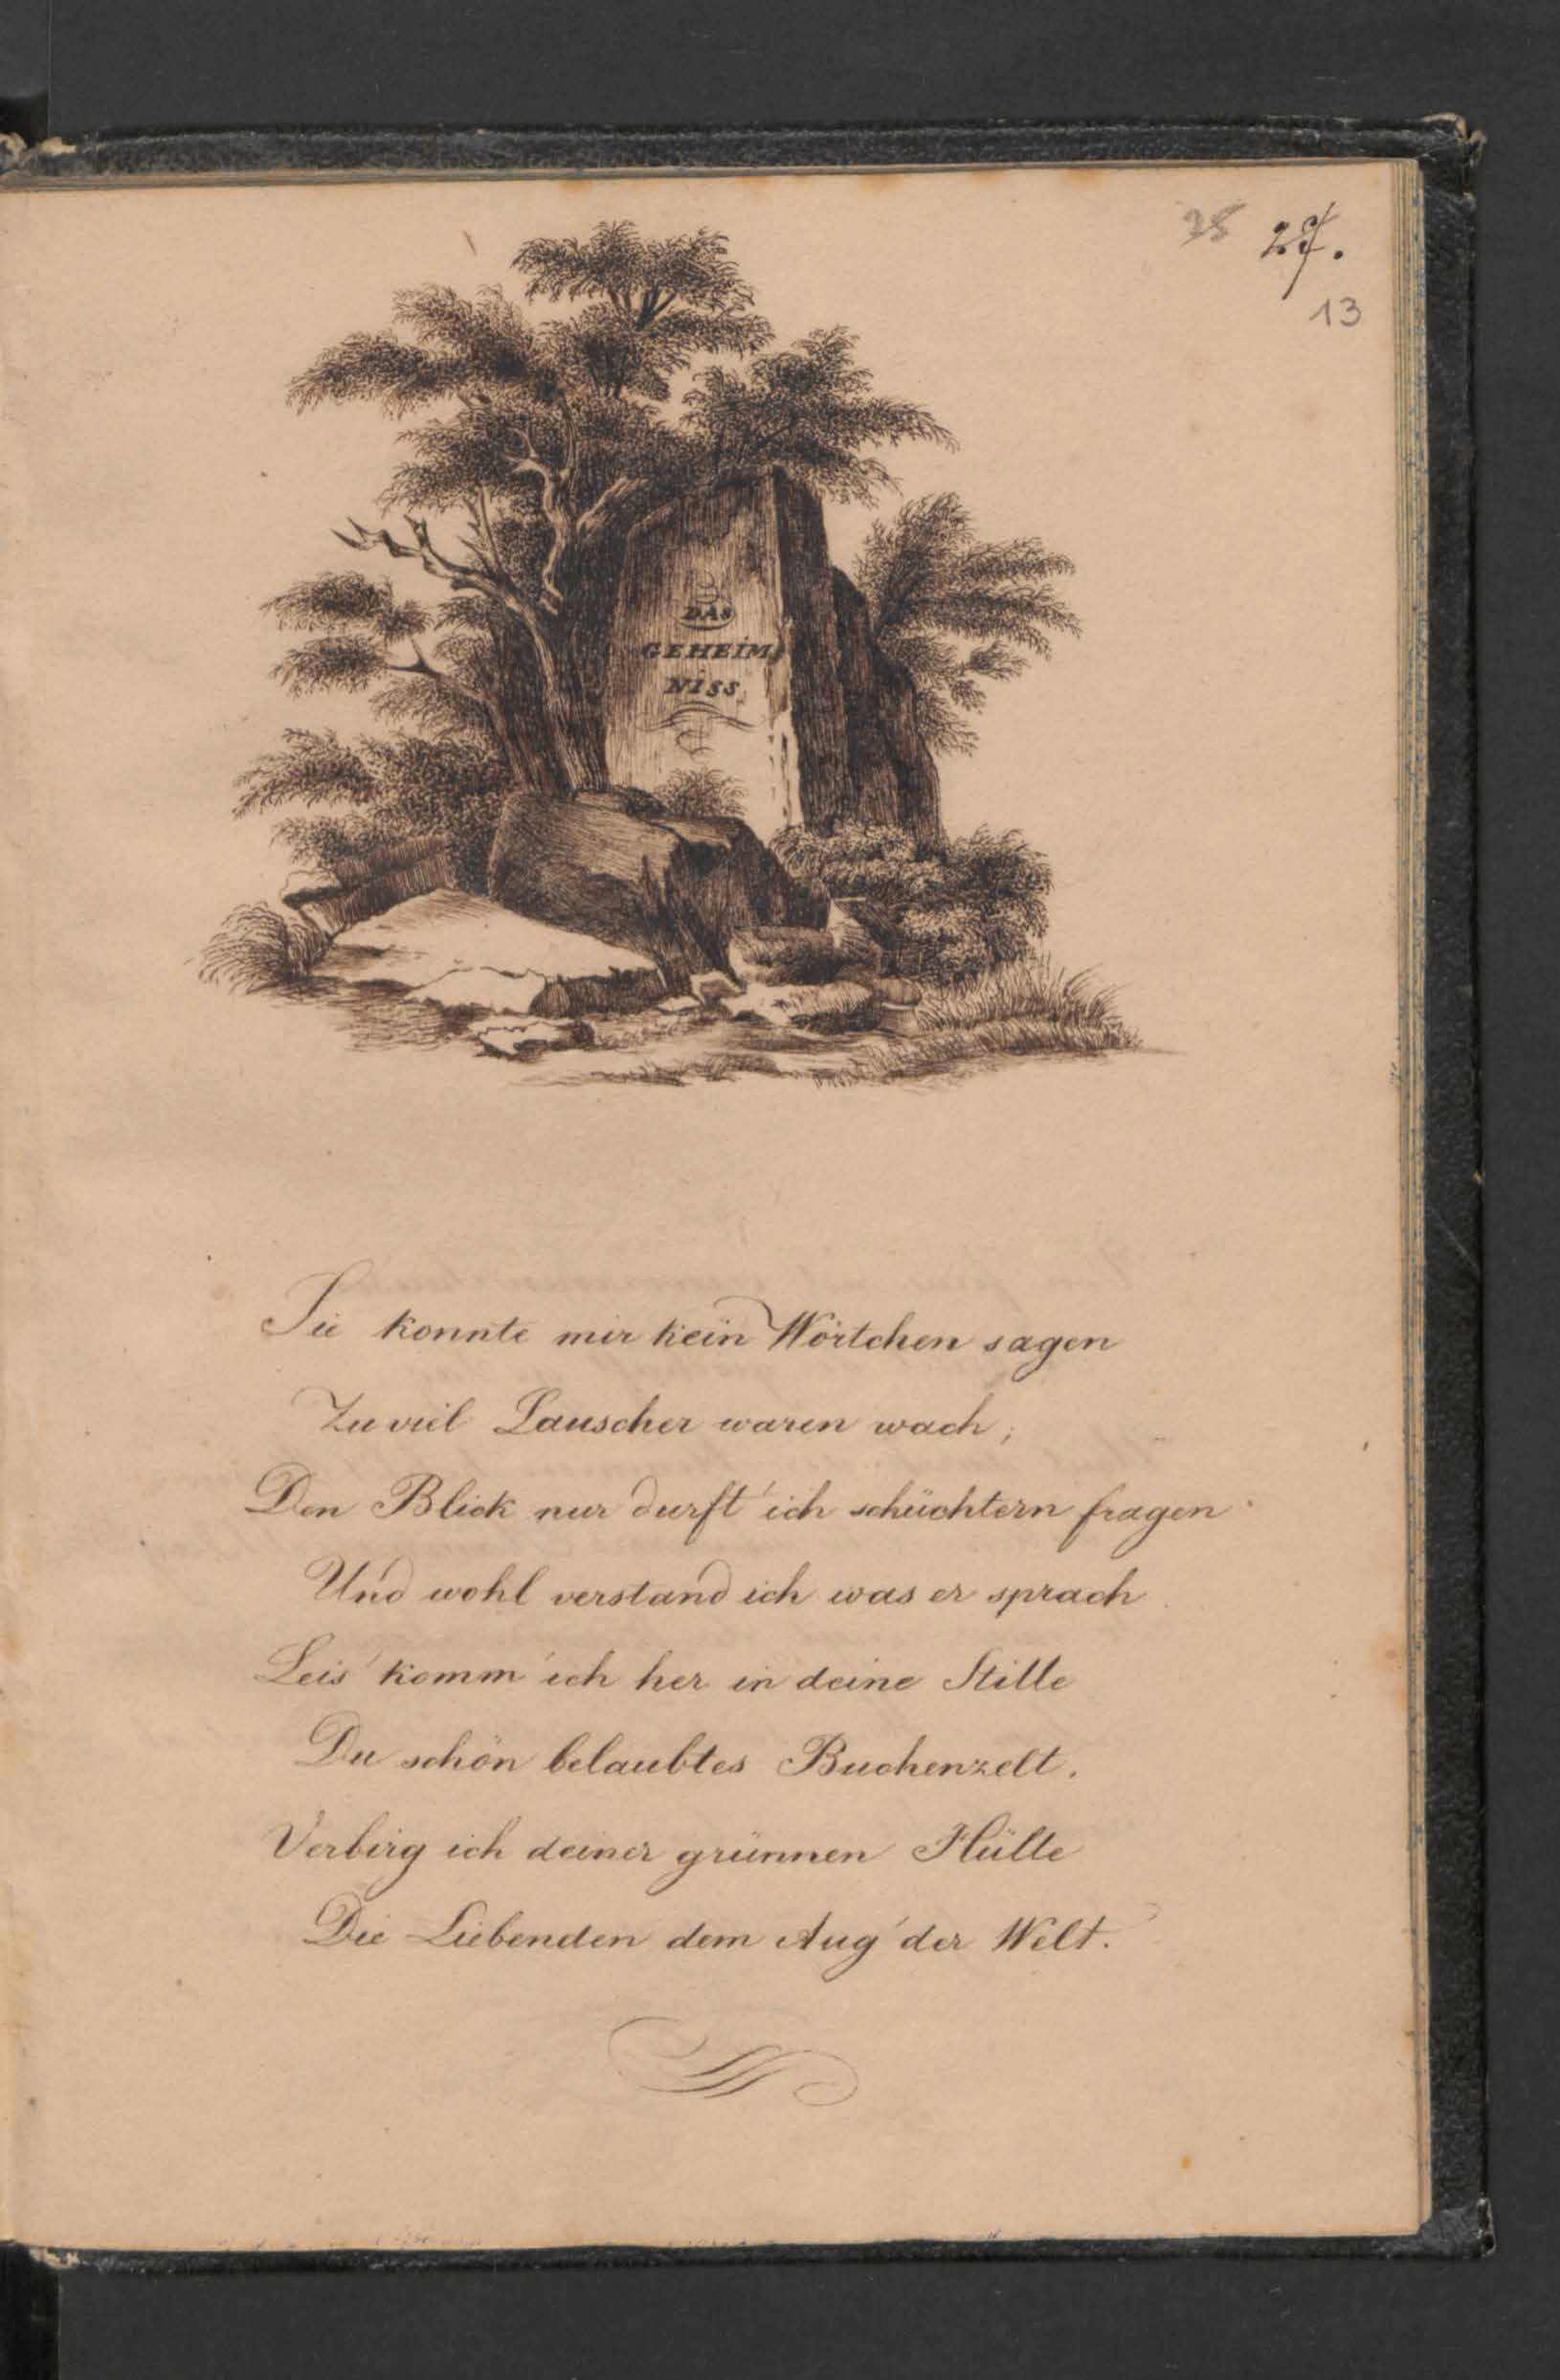 35 27.
13
DAS
GEHEIM
NISS
Sie konnte mir kein Wörtchen sagen
Zu viel Lauscher waren wach;
Den Blick nur durft' ich schüchtern fragen
Und wohl verstand ich was er sprach
Leis' komm' ich her in deine Stille
Du schön belaubtes Buchenzelt.
Verbirg ich deiner grünnen Hülle
Die Liebenden dem Aug' der Welt.